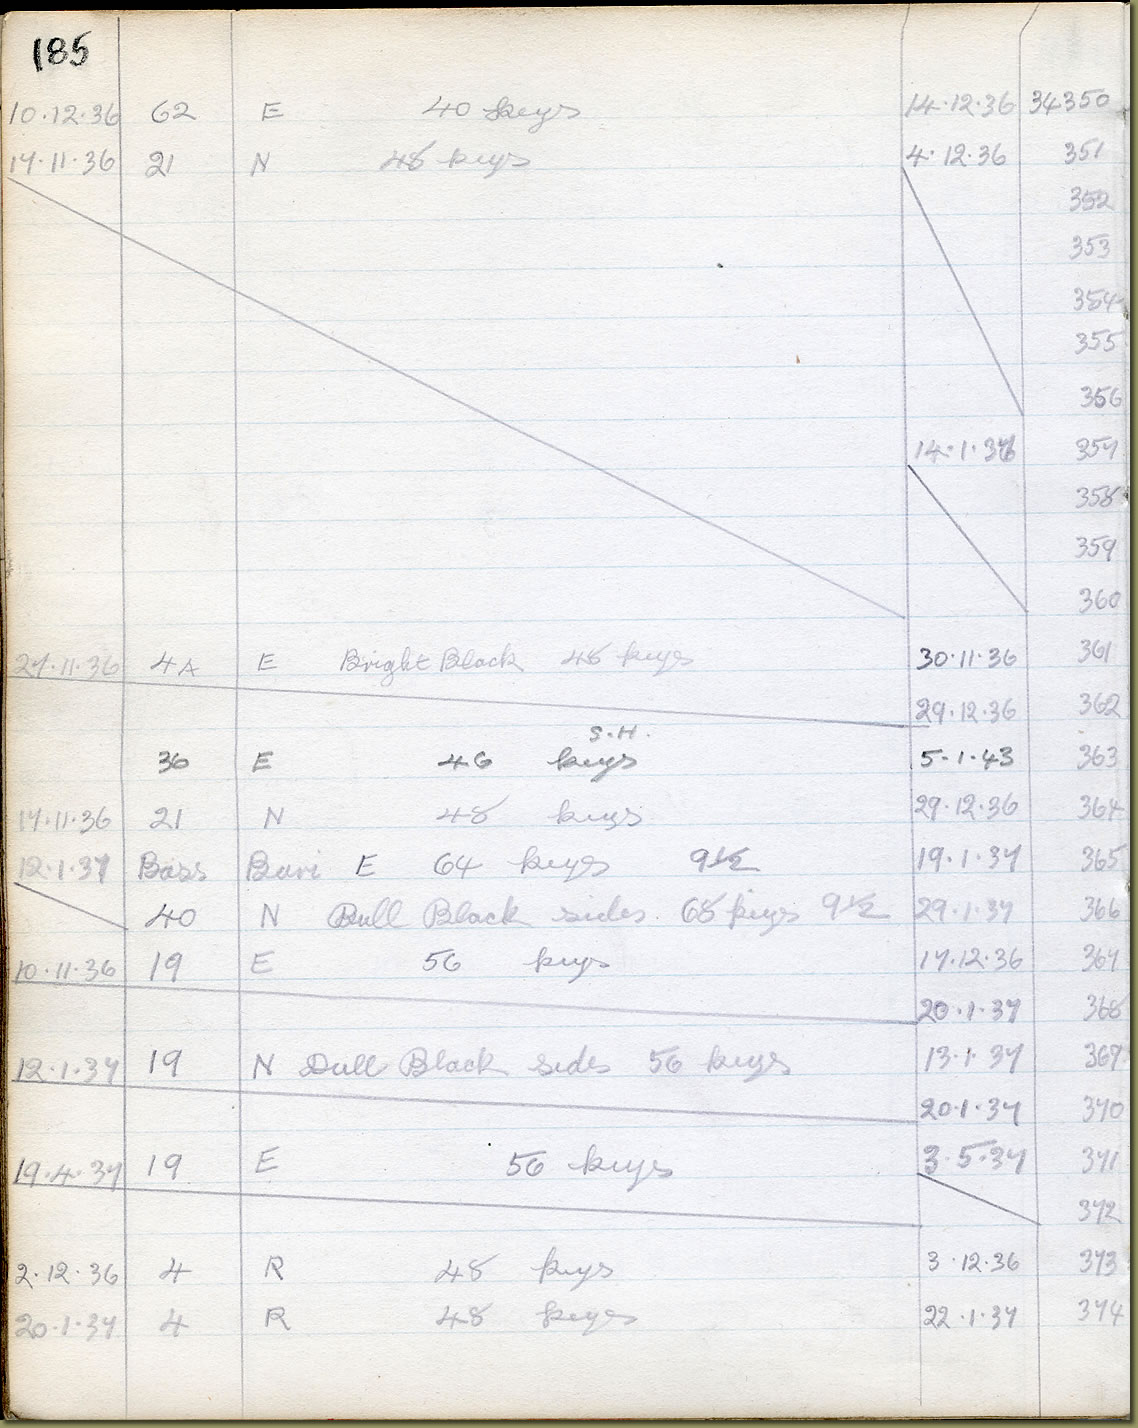 185
10.12.36 62 E 40 keys 14.12.36 34350
17.11.36 21 N 48 keys 4.12.36 351
352
353
354
355
356
14.1.37 357
358
359
360
27.11.36 4A E Bright Black 48 keys 30.11.36 361
29.12.36 362
S.H.
36 E 46 keys 5.1.43 363
17.11.36 21 N 48 keys 29.12.36 364
12.1.37 Bass Bari E 64 keys 9½ 19.1.37 365
40 N Dull Black sides. 68 keys 9½ 29.1.37 366
10.11.36 19 E 56 keys 17.12.36 367
20.1.37 368
12.1.37 19 N Dull Black sides 56 keys 13.1.37 369
20.1.37 370
19.4.37 19 E 56 keys 3.5.37 371
372
2.12.36 4 R 48 keys 3.12.36 373
20.1.37 4 R 48 keys 22.1.37 374